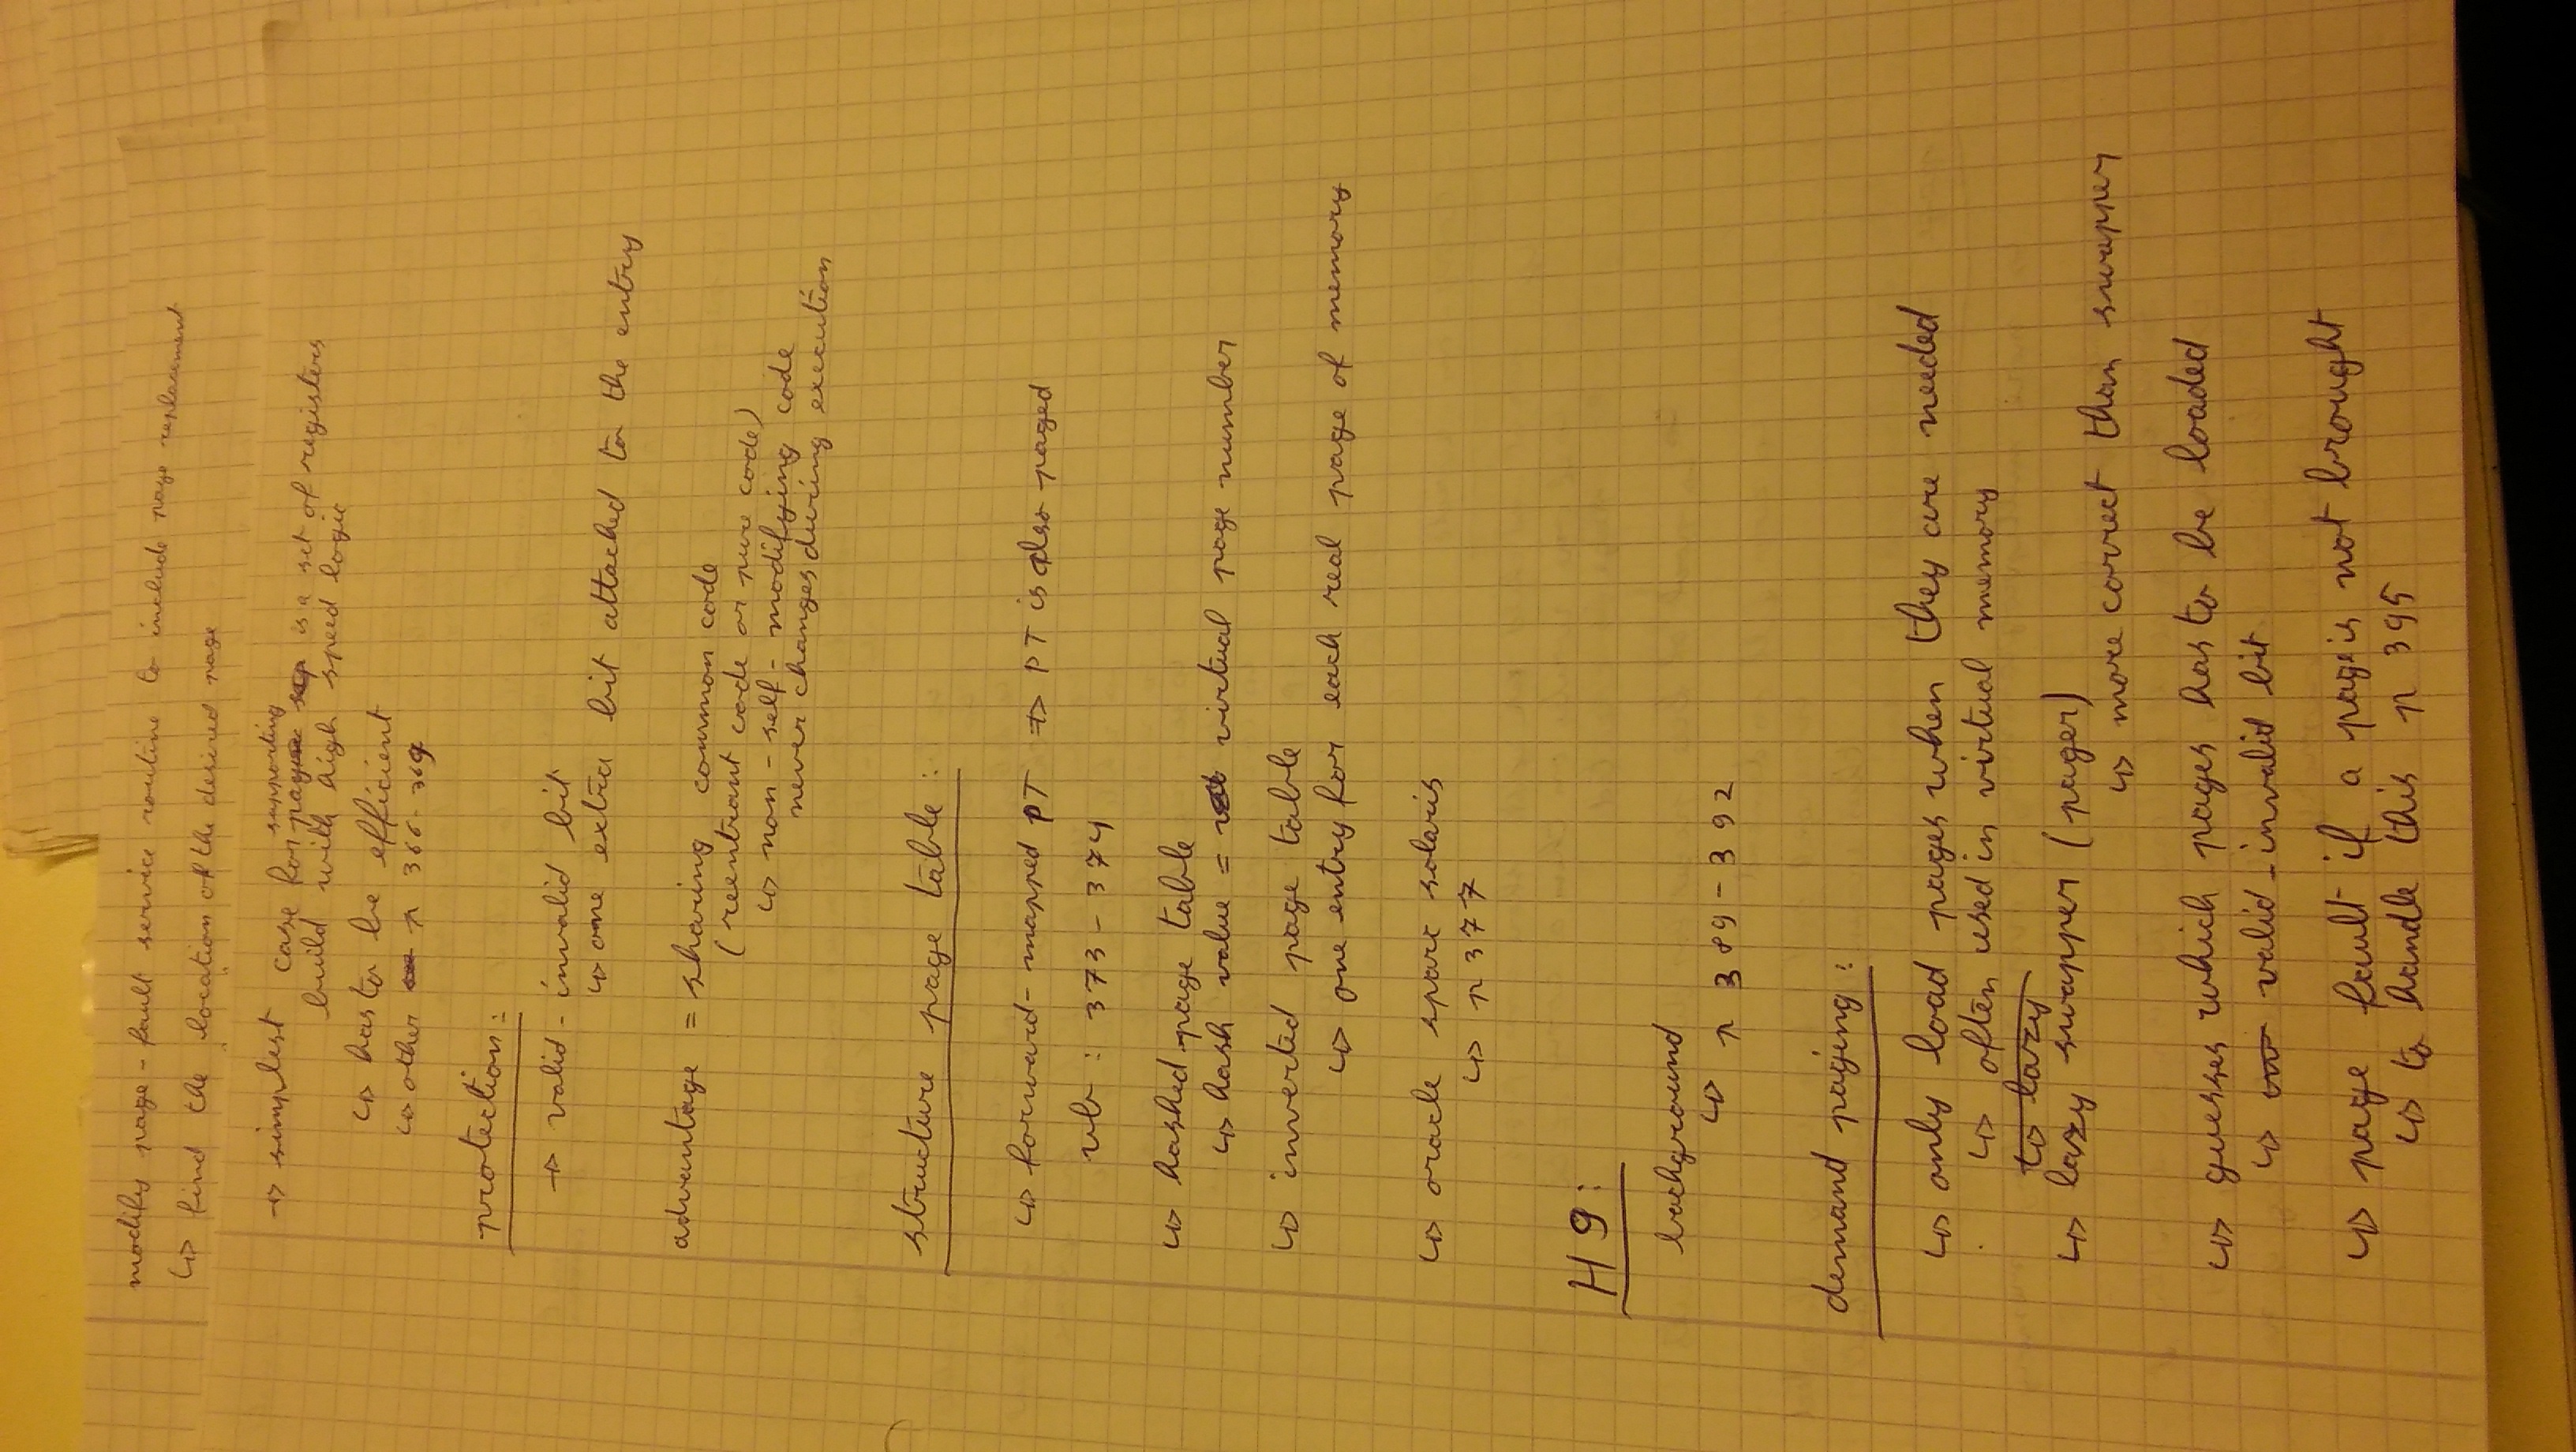 modify page - fault service routine to include page replacement
↳ find the location of the desired page
→ simplest case for supporting page is a set of registers
build with high speed logic
↳ has to be efficient
↳ other p 366-369
protection:
→ valid - invalid bit
↳ one extra bit attached to the entry
advantage = sharing common code
(reentrant code or pure code)
↳ non - self - modifying code
never changes during execution
structure page table:
↳ forward - mapped PT => PT is also paged
vb : 373 - 374
↳ hashed page table
↳ hash value = virtual page number
↳ inverted page table
↳ one entry for each real page of memory
↳ oracle sparc solaris
↳ p 377
H 9:
background
↳ p 389 - 392
demand paging:
↳ only load pages when they are needed
↳ often used in virtual memory
↳ lazy
↳ lazy swapper (pager)
↳ more correct than swapper
↳ guesses which pages has to be loaded
↳ valid - invalid bit
↳ page fault if a page is not brought
↳ to handle this p 395